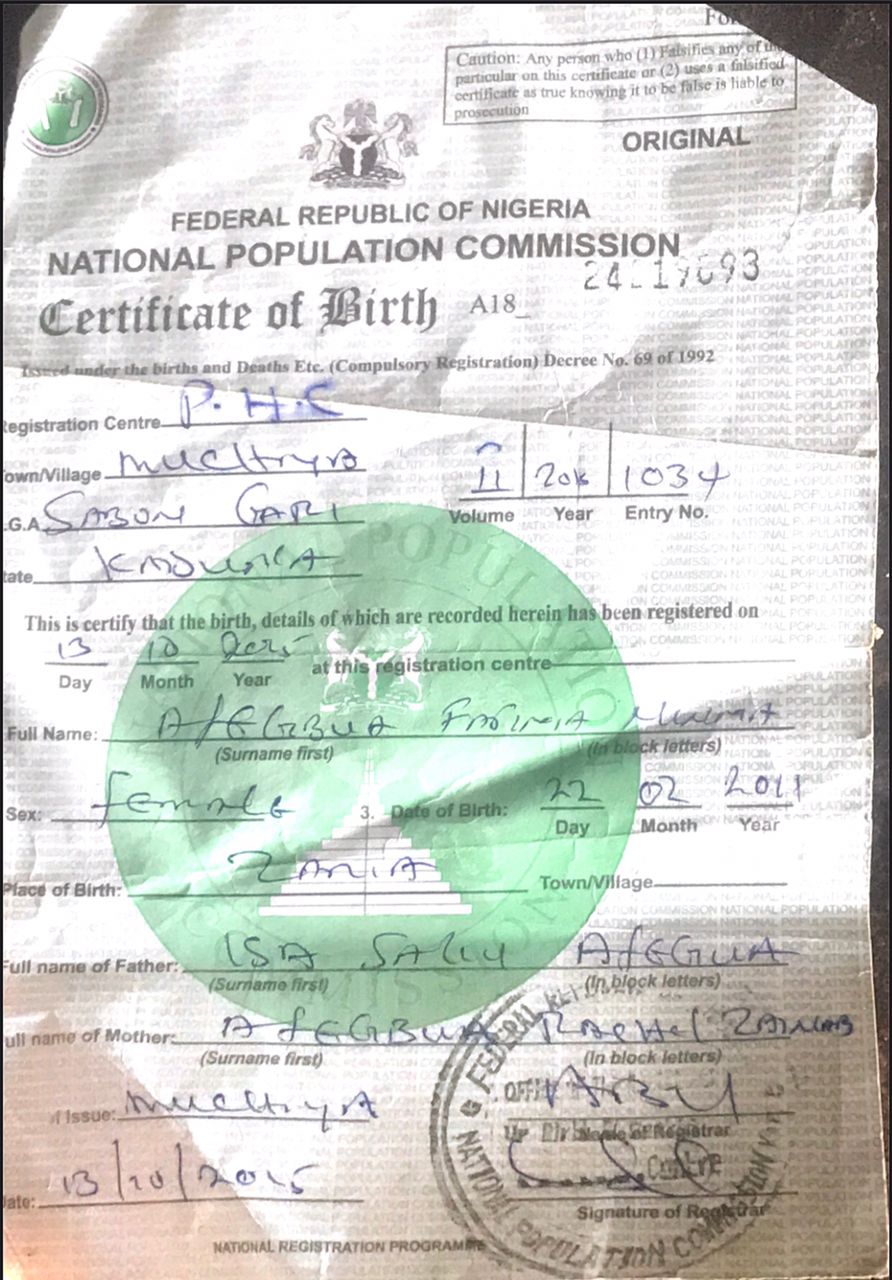 Caution: Any person who (1) Falsifies any of the
particular on this certificate or (2) uses a falsified
certificate as true knowing it to be false is liable to
prosecution
ORIGINAL
FEDERAL REPUBLIC OF NIGERIA
NATIONAL POPULATION COMMISSION
Certificate of Birth A18_
Issued under the births and Deaths Etc. (Compulsory Registration) Decree No. 69 of 1992
Registration Centre P.H.C
Town/Village
11 1034
Volume Year Entry No.
.G.A SABON GARI
tate KADUNA
This is certify that the birth, details of which are recorded herein has been registered on
13 10 at this registration centre
Day Month Year
Full Name: AfEGBUA
(Surname first) (In block letters)
Sex: female 3. Date of Birth: 22 02 2011
Day Month Year
Place of Birth: ZARIA Town/Village
Full name of Father: ISA SALIU AfEGUA
(Surname first) (In block letters)
ull name of Mother: AfEGBUA RACHel ZAINAB
(Surname first) (In block letters)
f Issue:
Name of Registrar
ate: 13/10/2015
Signature of Registrar
NATIONAL POPULATION COMMISSION
NATIONAL REGISTRATION PROGRAMME